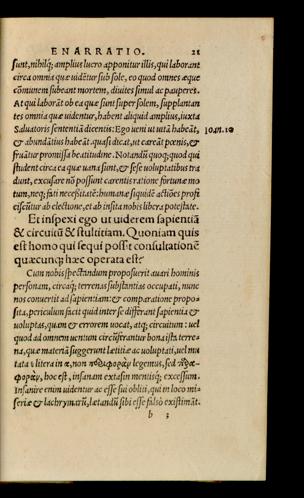 ENARRATIO. 21
sunt, nihilq́; amplius lucro apponitur illis, qui laborant
circa omnia quæ uidētur sub sole, eo quod omnes æque
cōmunem subeant mortem, diuites simul ac pauperes.
At qui laborāt ob ea quæ sunt super solem, supplantan
tes omnia quæ uidentur, habent aliquid amplius, iuxta
Saluatoris sententiā dicentis: Ego ueni ut uitā habeāt, IOAN. 10
& abundātius habeāt. quasi dicat, ut careāt pœnis, &
fruātur promissa beatitudine. Notandū quoq; quod qui
student circa ea quæ uana sunt, & sese uoluptatibus tra
dunt, excusare nō possunt carentis ratione fortunæ mo
tum, neq; fati necessitatē. humanæ siquidē actiōes profi
ciscūtur ab electione, et ab insita nobis libera potestate.
Et inspexi ego ut uiderem sapientiā
& circuitū & stultitiam. Quoniam quis
est homo qui sequi posse consultationē
quæcunq; hæc operata est?
Cum nobis spectandum proposuerit auari hominis
personam, circaq́; terrenas substantias occupati, nunc
nos conuertit ad sapientiam: & comparatione propo-
sita, periculum facit quid inter se differāt sapientia &
uoluptas, quam & errorem uocat, atq; circuitum: uel
quod ad omnem uentum circūferantur bona ista terre-
na, quæ materiā suggerunt lætitiæ ac uoluptati, uel mu
tata litera in non legemus, sed
hoc est, insanam extasin mentisq́; excessum.
Insanire enim uidentur ac esse sui obliti, qui in loco mi-
seriæ & lachrymarū, lætandū sibi esse falsò existimāt.
b 3